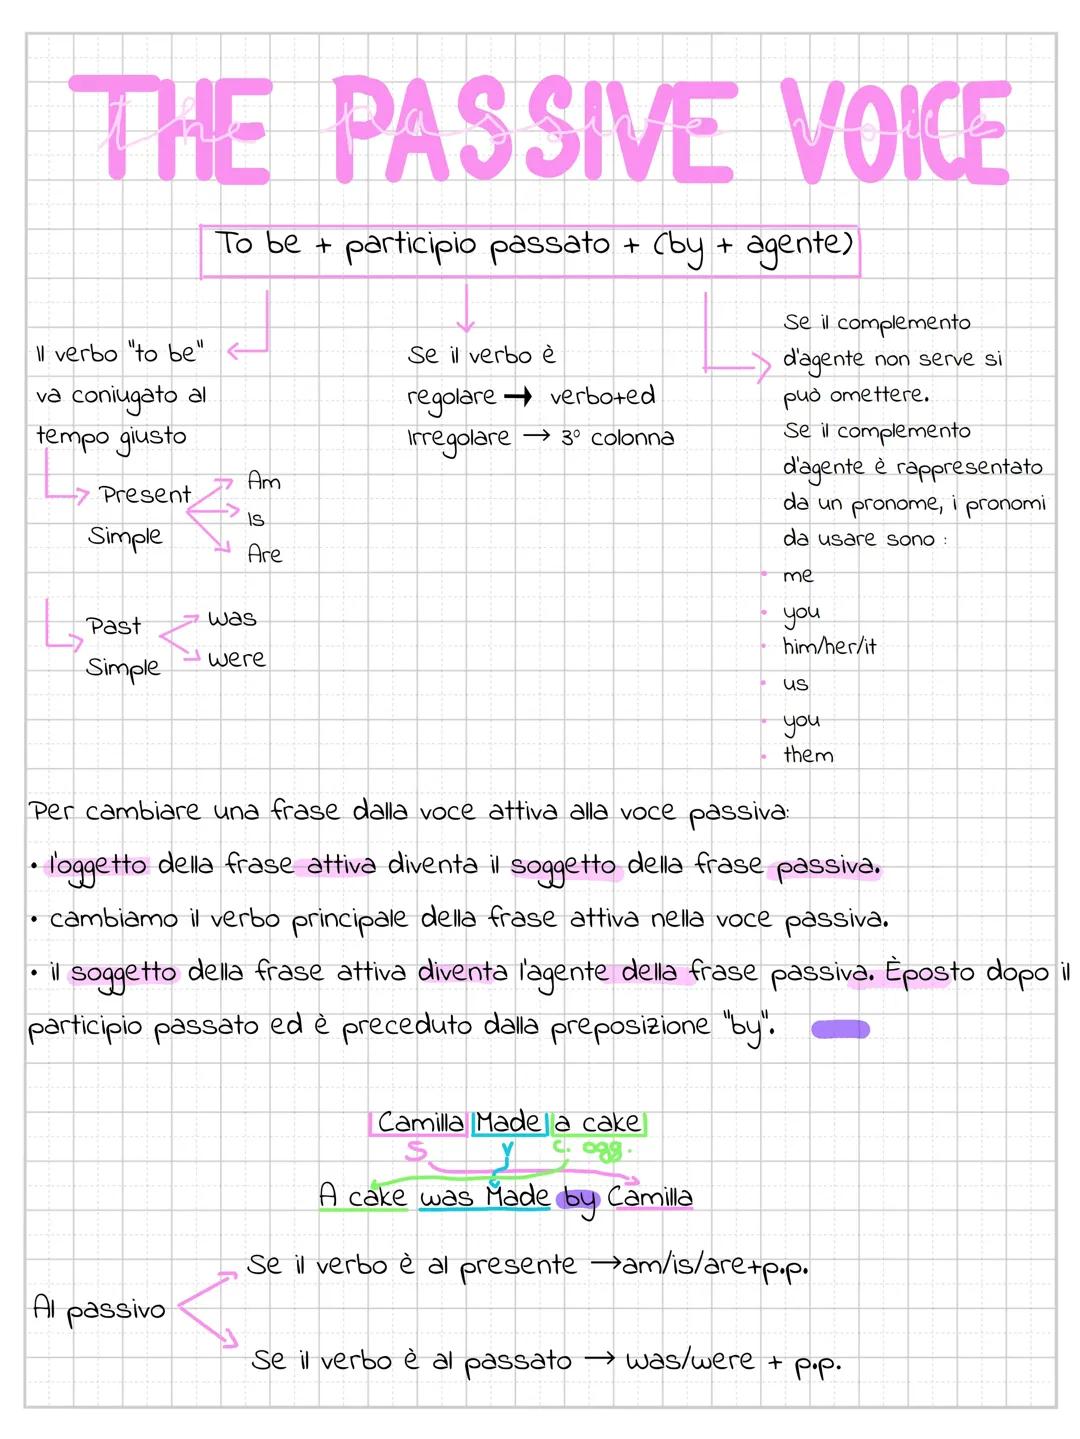 THE PASSIVE VOICE
the passive voice
To be + participio passato + (by + agente)
Il verbo "to be"
va coniugato al
tempo giusto
Present
Simple
Am
Is
Are
Past
Simple
was
were
Se il verbo è
regolare → verbo+ed
Irregolare → 3° colonna
Se il complemento
d'agente non serve si
può omettere.
Se il complemento
d'agente è rappresentato
da un pronome, i pronomi
da usare sono :
• me
• you
• him/her/it
• us
• you
• them
Per cambiare una frase dalla voce attiva alla voce passiva:
• l'oggetto della frase attiva diventa il soggetto della frase passiva.
• cambiamo il verbo principale della frase attiva nella voce passiva.
• il soggetto della frase attiva diventa l'agente della frase passiva. Èposto dopo il
participio passato ed è preceduto dalla preposizione "by".
Camilla Made a cake
S V C. ogg.
A cake was Made by Camilla
Al passivo
Se il verbo è al presente →am/is/are+p.p.
Se il verbo è al passato → was/were + p.p.